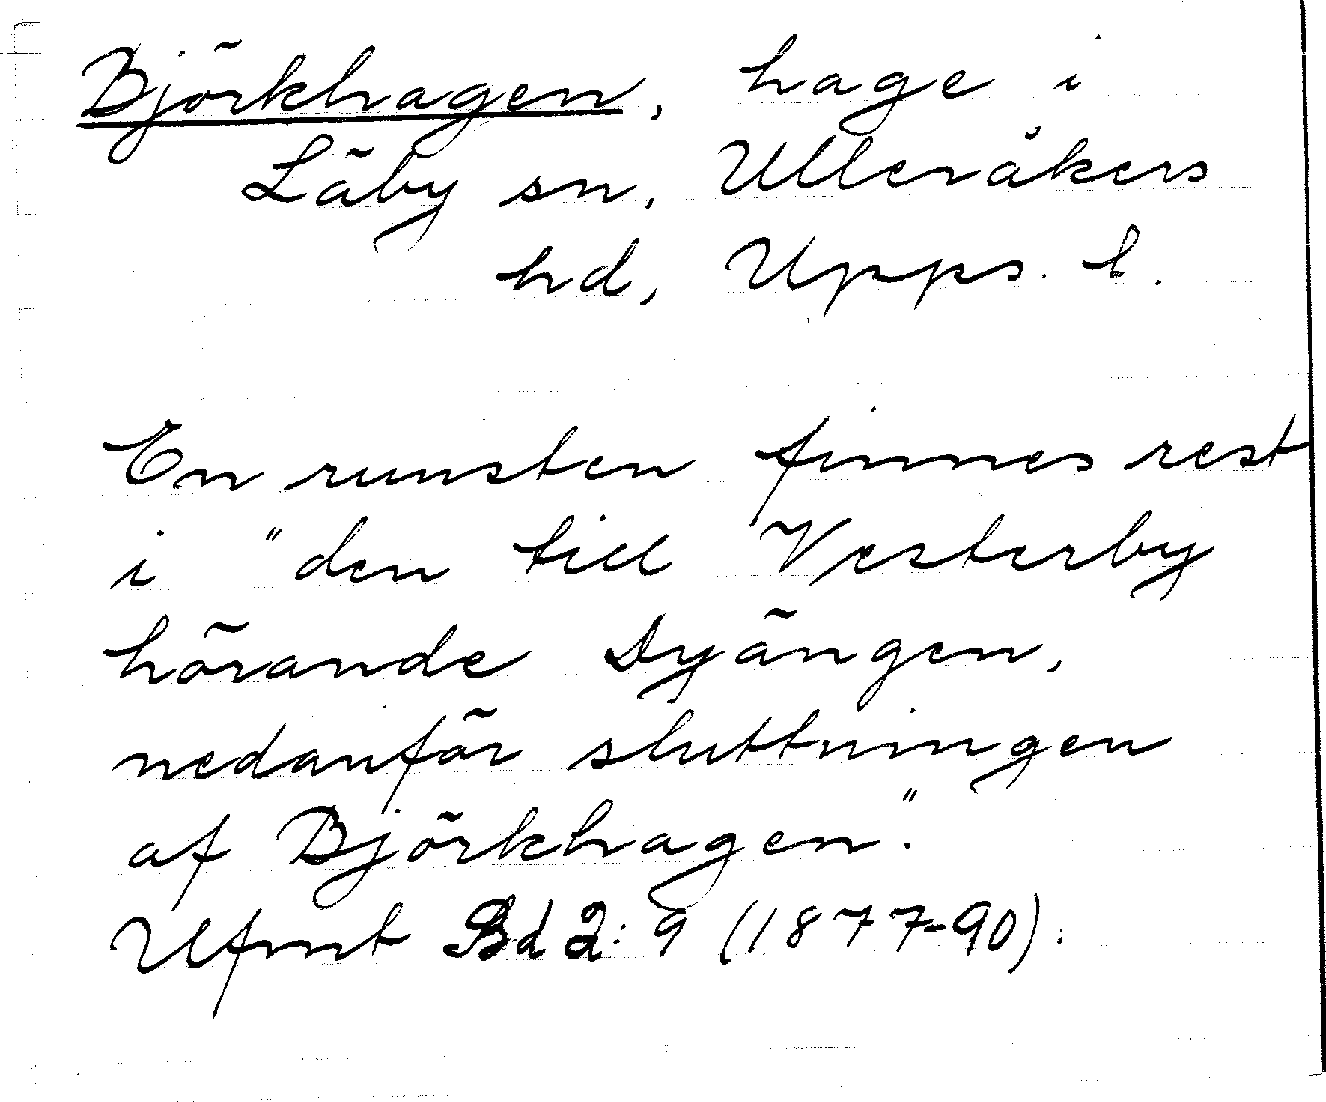 Björkhagen, hage i
Läby sn, Ulleråkers
hd, Upps. l.
En runsten finnes rest
i "den till Vesterby
hörande Dyängen,
nedanför sluttningen
af Björkhagen".
Ufmt Bd 2: 9 (1877-90).